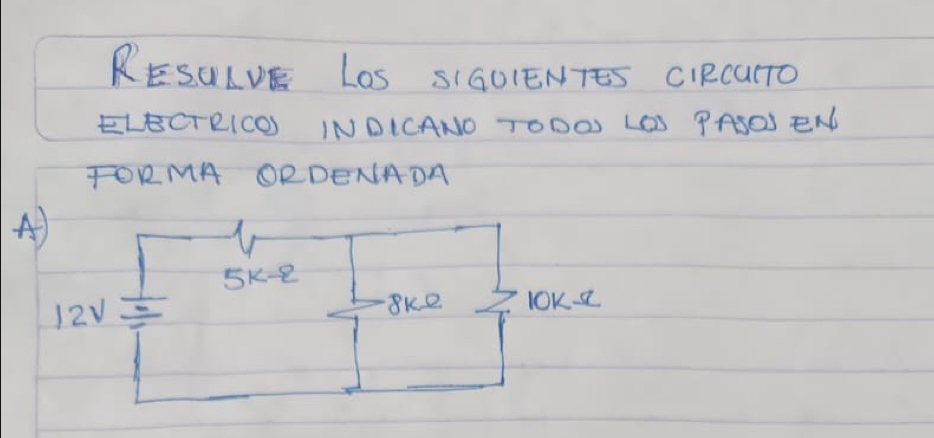 RESULVE LOS SIGUIENTES CIRCUITO
ELECTRICOS INDICANO TODOS LOS PASOS EN
FORMA ORDENADA
A)
5KΩ
12V
8KΩ
10KΩ